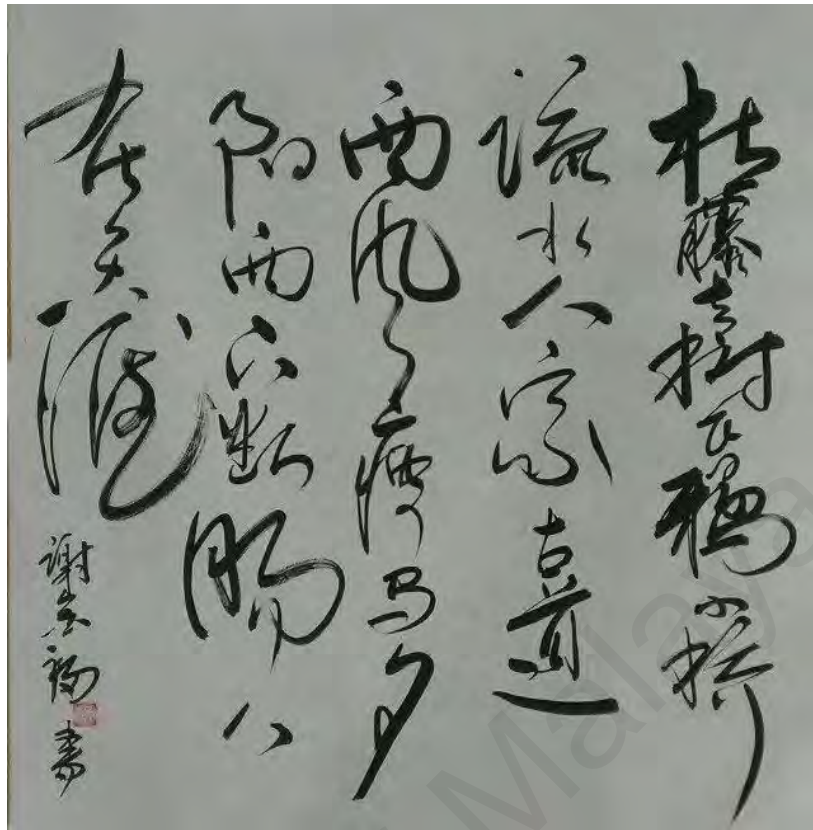 枯藤老樹昏鴉小橋
流水人家古道
西风瘦马夕
阳西下断腸人
在天涯
謝福書
Malaya